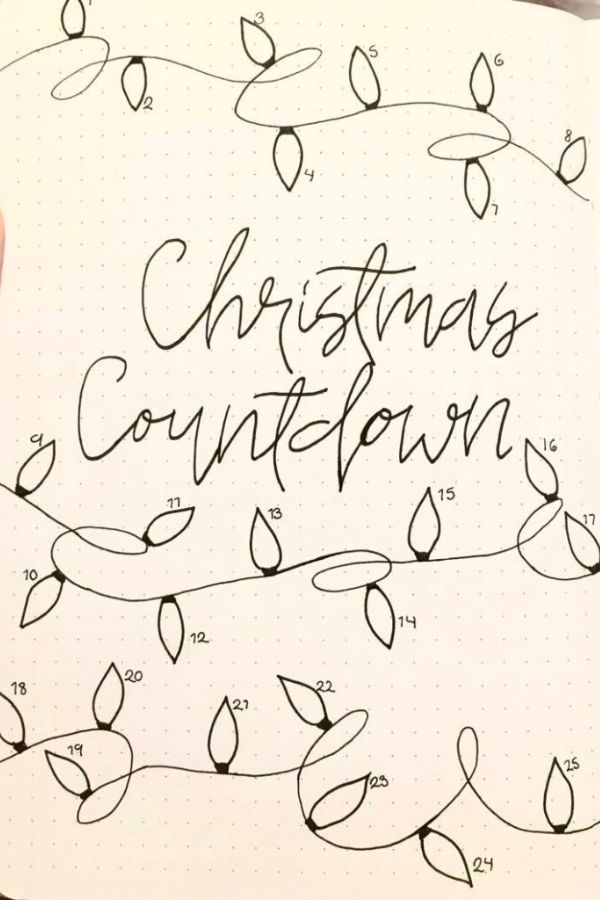 1
2
3
4
5
6
7
8
Christmas
Countdown
9
10
11
12
13
14
15
16
17
18
19
20
21
22
23
24
25